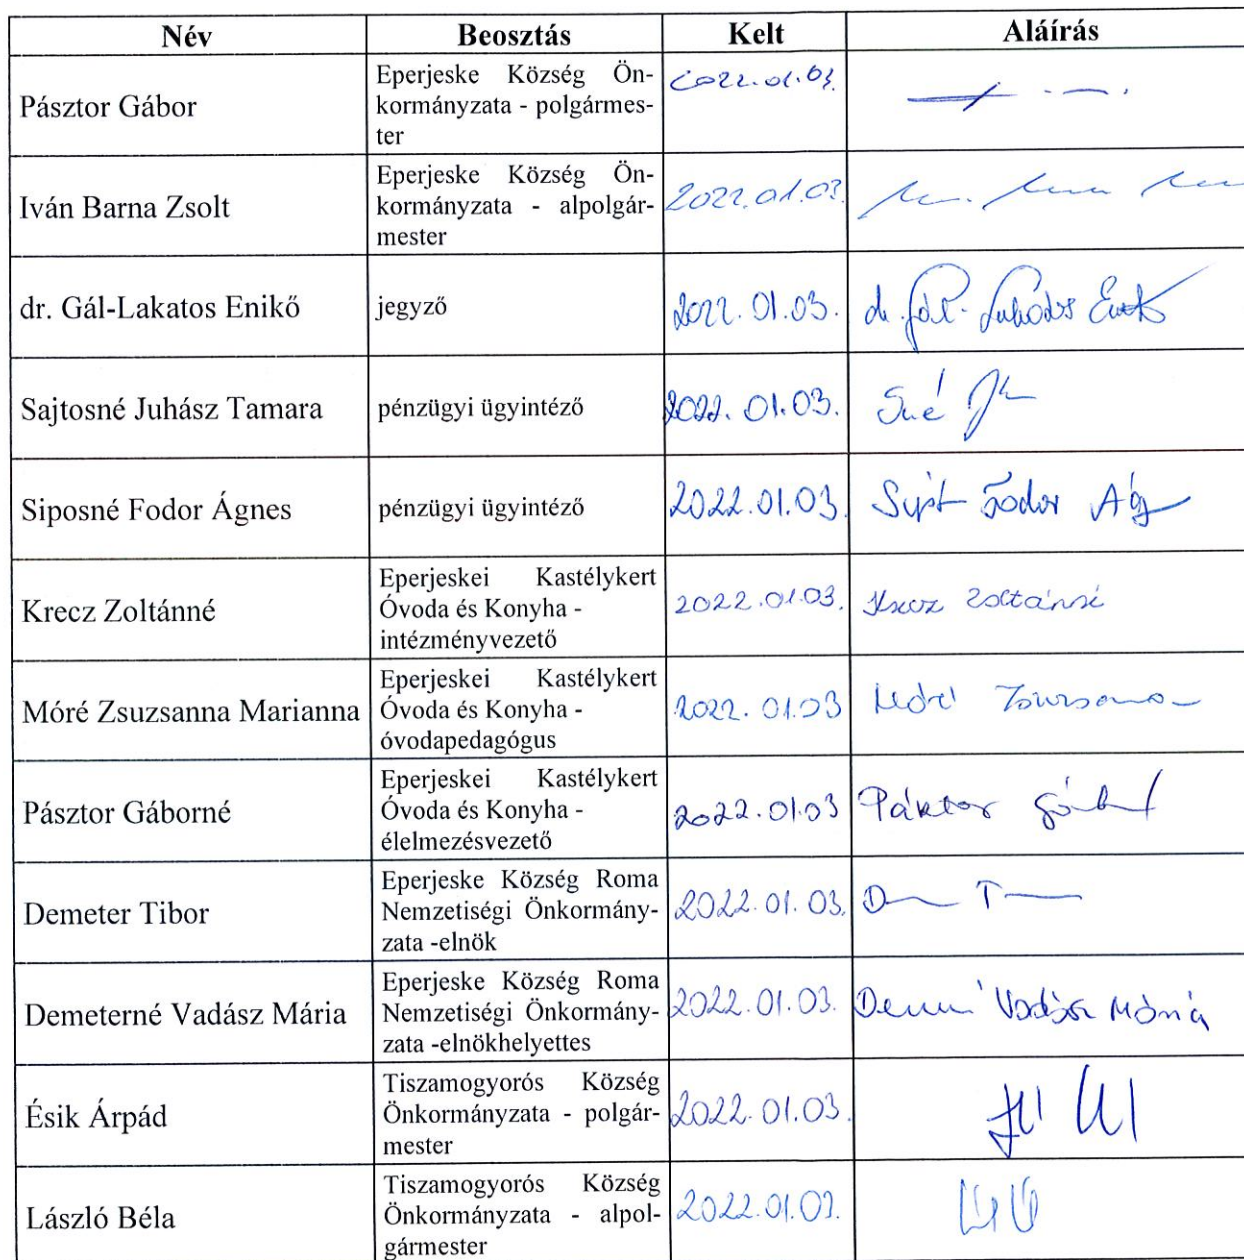 Név Beosztás Kelt Aláírás
Pásztor Gábor
Eperjeske Község Ön-
kormányzata - polgármes-
ter
2022.01.03.
Iván Barna Zsolt
Eperjeske Község Ön-
kormányzata - alpolgár-
mester
2022.01.03.
dr. Gál-Lakatos Enikő
jegyző
2022.01.03.
dr. Gál-Lakatos Enikő
Sajtosné Juhász Tamara
pénzügyi ügyintéző
2022.01.03.
Siposné Fodor Ágnes
pénzügyi ügyintéző
2022.01.03.
Fodor Ág
Krecz Zoltánné
Eperjeskei Kastélykert
Óvoda és Konyha -
intézményvezető
2022.01.03.
Krecz Zoltánné
Móré Zsuzsanna Marianna
Eperjeskei Kastélykert
Óvoda és Konyha -
óvodapedagógus
2022.01.03
Móré Zsuzsanna
Pásztor Gáborné
Eperjeskei Kastélykert
Óvoda és Konyha -
élelmezésvezető
2022.01.03
Pásztor
Demeter Tibor
Eperjeske Község Roma
Nemzetiségi Önkormány-
zata -elnök
2022.01.03.
Demeterné Vadász Mária
Eperjeske Község Roma
Nemzetiségi Önkormány-
zata -elnökhelyettes
2022.01.03.
Vadász Mária
Ésik Árpád
Tiszamogyorós Község
Önkormányzata - polgár-
mester
2022.01.03.
László Béla
Tiszamogyorós Község
Önkormányzata - alpol-
gármester
2022.01.03.